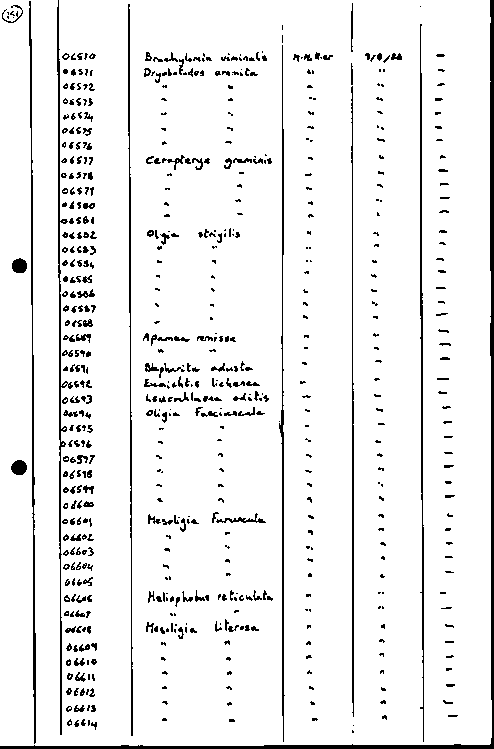 06570 Brachylomia viminalis
06571 Dryobotodes eremita " " —
06572 " " " " —
06573 " " " " —
06574 " " " " —
06575 " " " " —
06576 " " " " —
06577 Cerapteryx graminis " " —
06578 " " " " —
06579 " " " " —
06580 " " " " —
06581 " " " " —
06582 Oligia strigilis " " —
06583 " " " " —
06584 " " " " —
06585 " " " " —
06586 " " " " —
06587 " " " " —
06588 " " " " —
06589 Apamea remissa " " —
06590 " " " " —
06591 Blepharita adusta " " —
06592 Eumichtis lichenea " " —
06593 Leucochlaena oditis " " —
06594 Oligia Fasciuncula " " —
06595 " " " " —
06596 " " " " —
06597 " " " " —
06598 " " " " —
06599 " " " " —
06600 " " " " —
06601 Mesoligia Furuncula " " —
06602 " " " " —
06603 " " " " —
06604 " " " " —
06605 " " " " —
06606 Heliophobus reticulata " " —
06607 " " " " —
06608 Mesoligia Literosa " " —
06609 " " " " —
06610 " " " " —
06611 " " " " —
06612 " " " " —
06613 " " " " —
06614 " " " " —